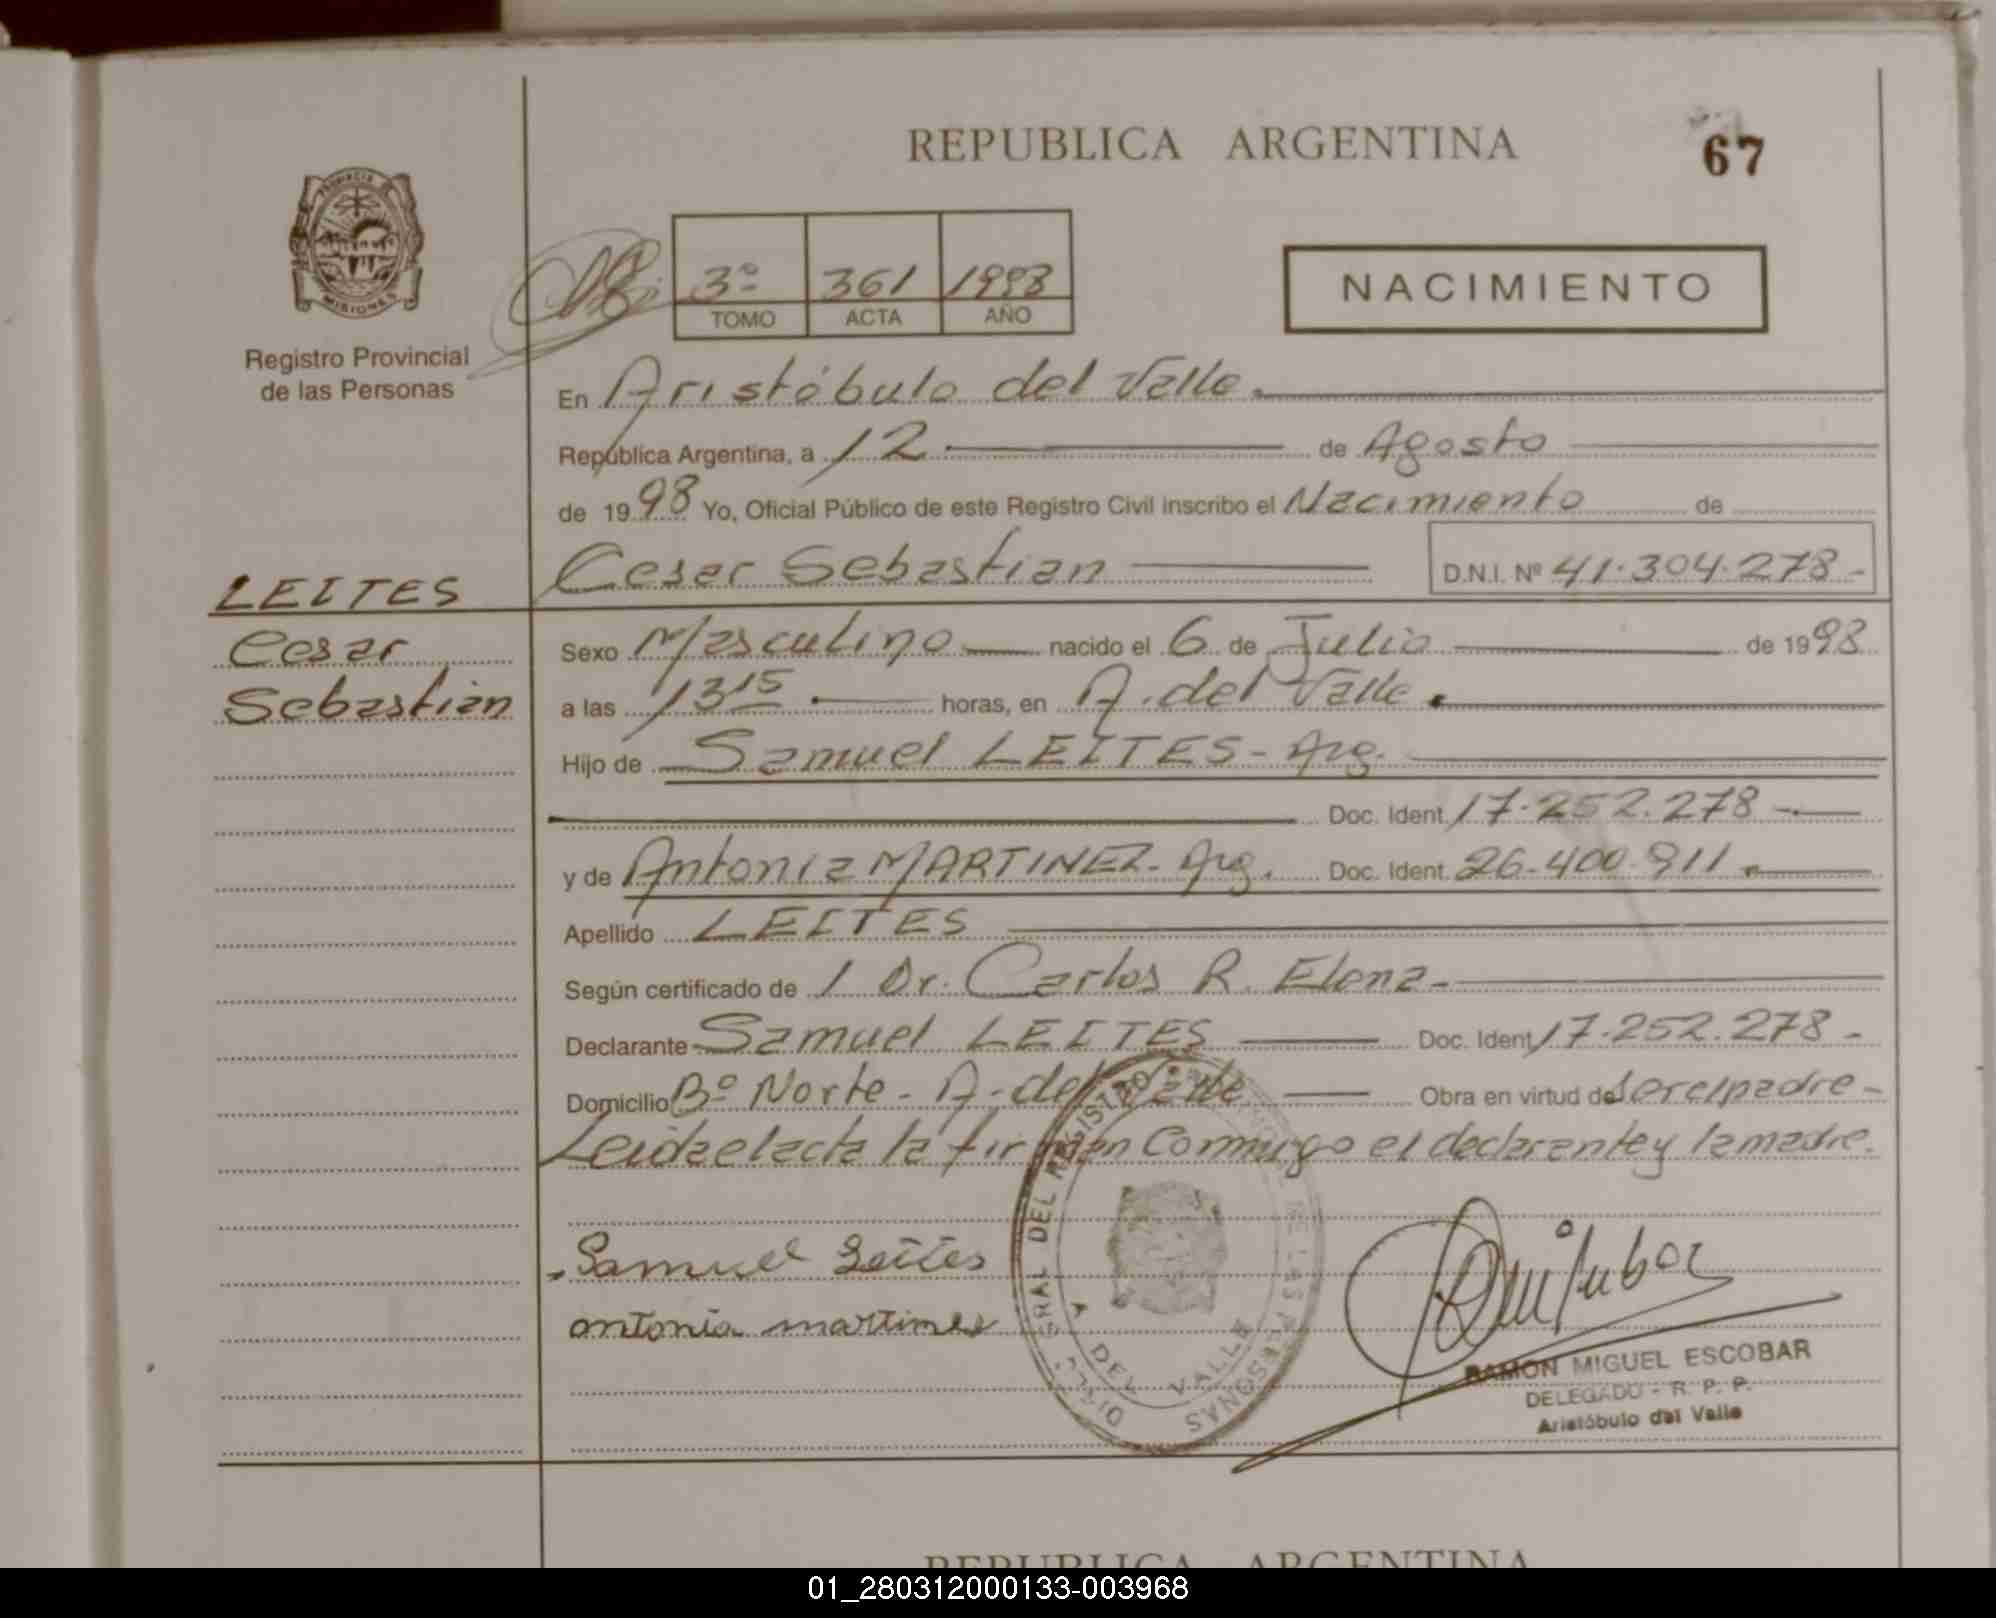 REPUBLICA ARGENTINA
67
PROVINCIA DE
MISIONES
Registro Provincial
de las Personas
3º 361 1998
TOMO ACTA AÑO
NACIMIENTO
En Aristóbulo del Valle.
República Argentina, a 12 de Agosto
de 1998 Yo, Oficial Público de este Registro Civil inscribo el Nacimiento de
Cesar Sebastian D.N.I. Nº 41.304.278-
LEITES
Cesar
Sebastián
Sexo Masculino nacido el 6 de Julio de 1998
a las 13 15 horas, en A. del Valle.
Hijo de Samuel LEITES- Arg.
Doc. Ident. 17.252.278-
y de Antonia MARTINEZ- Arg. Doc. Ident. 26.400.911.
Apellido LEITES
Según certificado de 1 Dr. Carlos R. Elena-
Declarante Samuel LEITES Doc. Ident. 17.252.278-
Domicilio Bº Norte - A. del Valle Obra en virtud de ser el padre-
Leida el acta la firman Conmigo el declarante y la madre.
Samuel Leites
antonia martines
DEL REGISTRO DE LAS PERSONAS
A DEL VALLE
RAMON MIGUEL ESCOBAR
DELEGADO - R. P. P.
Aristóbulo del Valle
REPUBLICA ARGENTINA
01_280312000133-003968